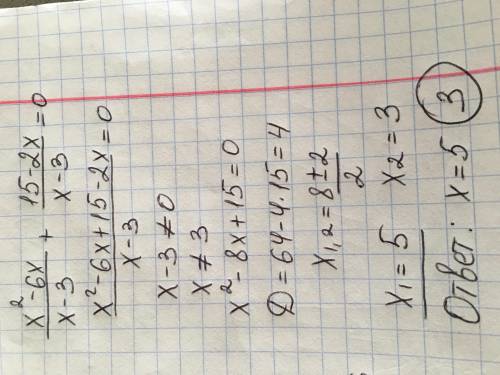 x²-6x/x-3 + 15-2x/x-3 = 0
x²-6x+15-2x/x-3 = 0
x-3≠0
x≠3
x²-8x+15=0
D=64-4·15=4
x₁,₂=8±2/2
x₁=5 x₂=3
Ответ: x=5 3